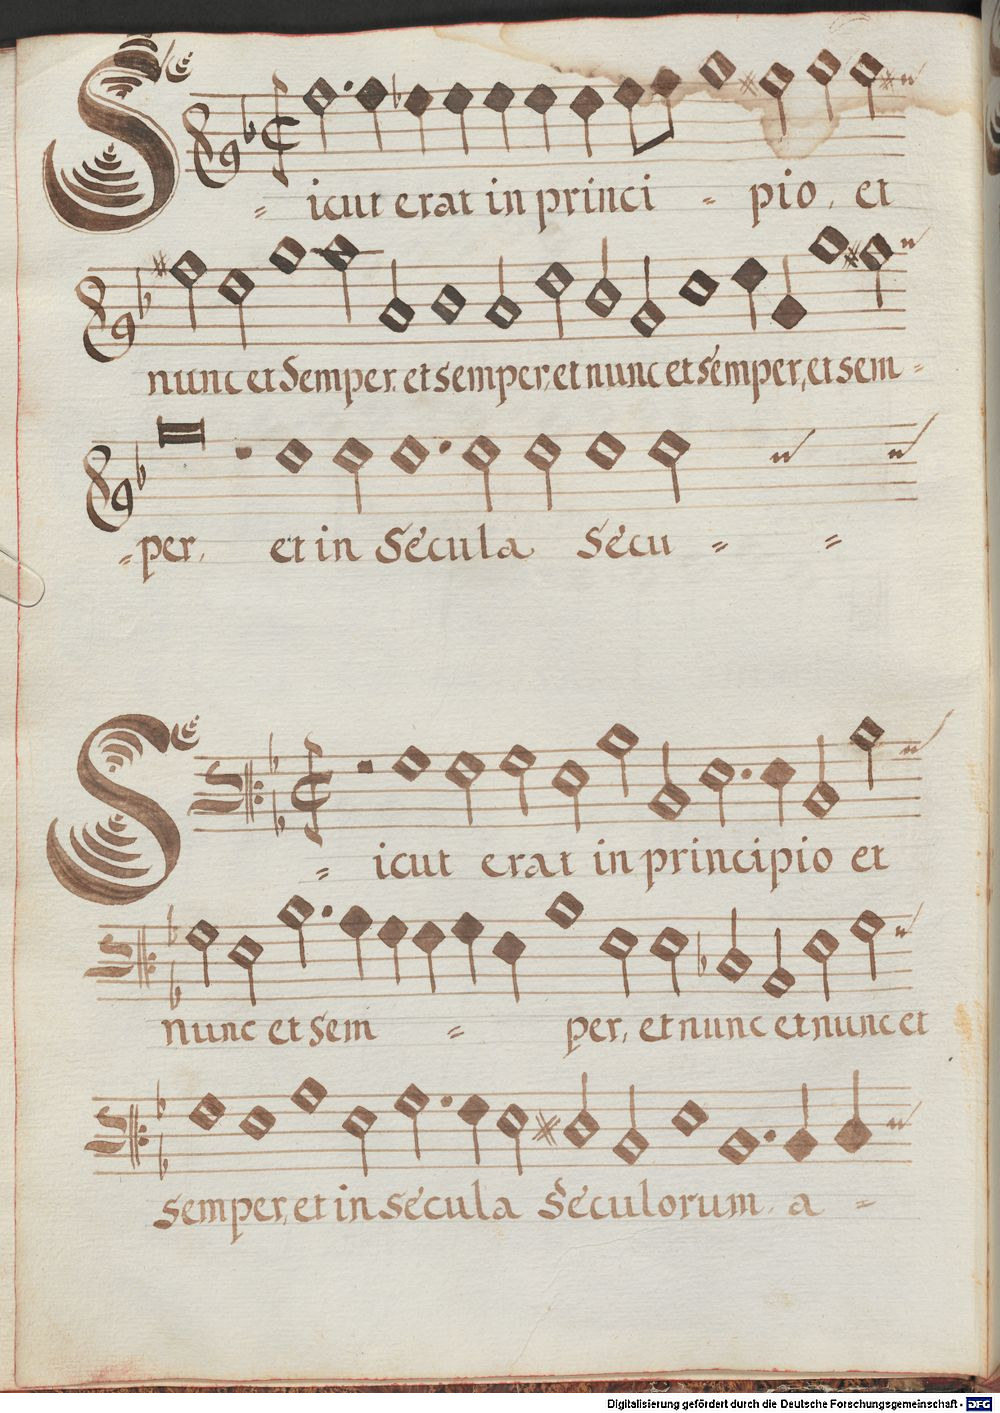 Sicut erat in princi - pio, et
nunc et Semper, et semper, et nunc et semper, et sem-
-per, et in Sécula Sécu - -
Sicut erat in principio et
nunc et sem - per, et nunc et nunc et
semper, et in sécula Séculorum. a -
Digitalisierung gefördert durch die Deutsche Forschungsgemeinschaft - DFG